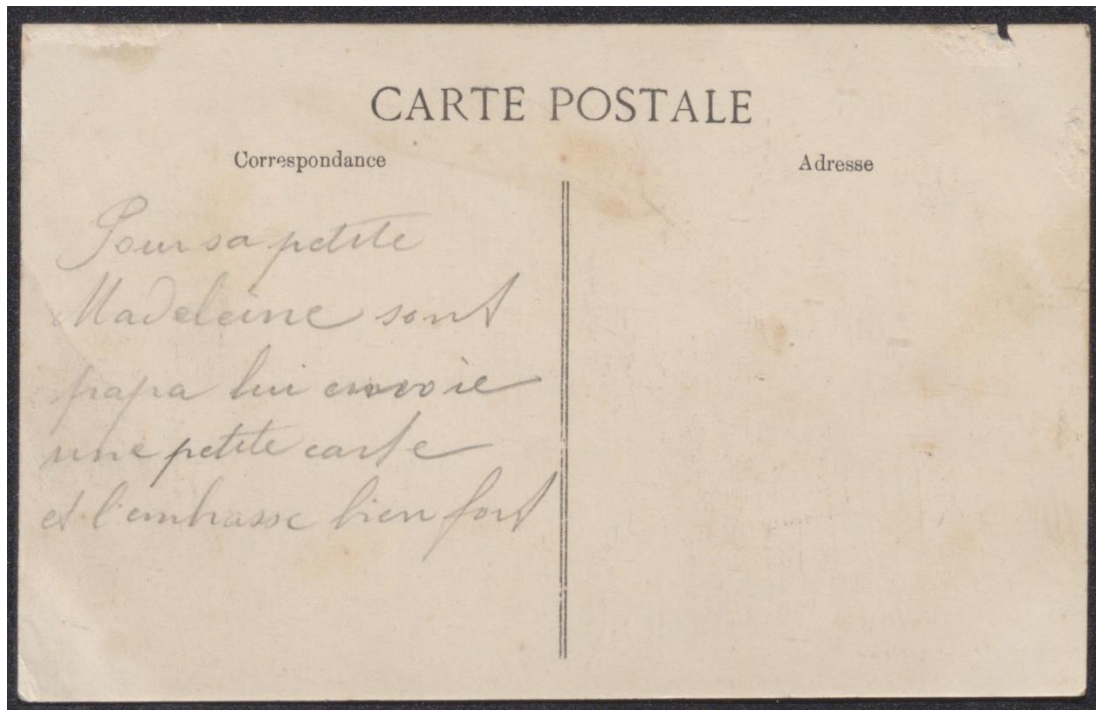 CARTE POSTALE
Correspondance
Adresse
Pour sa petite
Madeleine sont
papa lui envoie
une petite carte
et l'embrasse bien fort